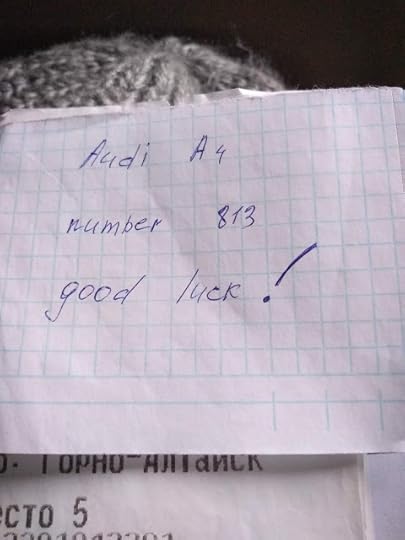 Audi A4
number 813
good luck!
Горно-Алтайск
есто 5